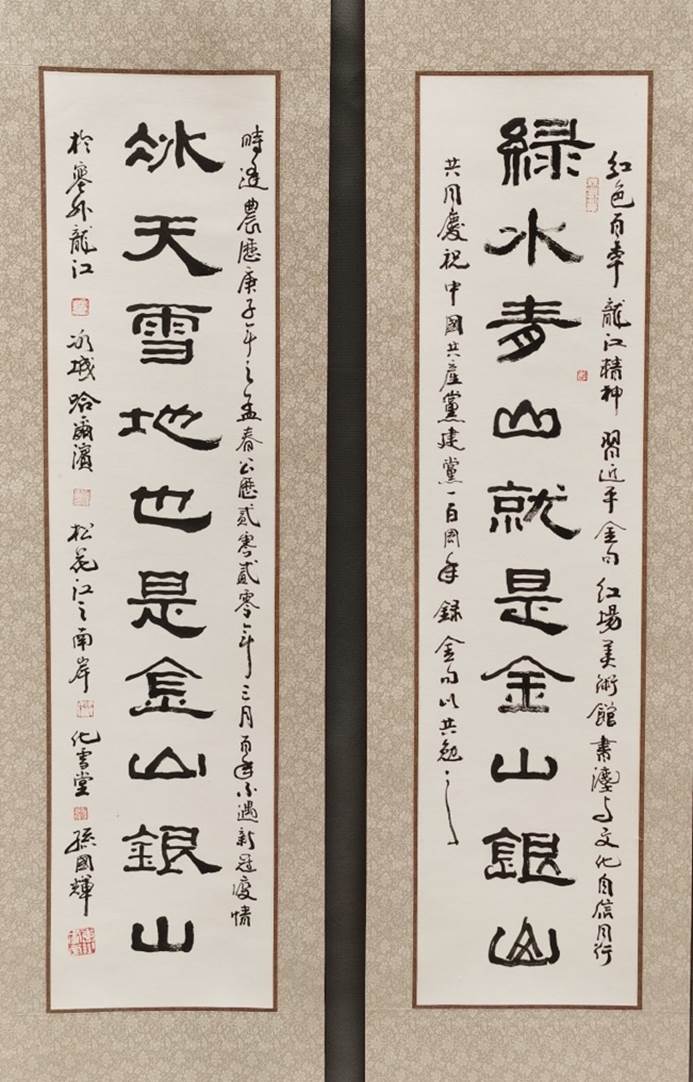 红色百年 龍江精神 習近平金句 红場美術館 書灋与文化自信同行
綠水青山就是金山銀山
共同慶祝中國共產黨建黨一百周年 錄金句以共勉之
時逢農歷庚子年之孟春公歷貳零貳零年三月百年不遇新冠疫情
冰天雪地也是金山銀山
於塞外龍江 冰城哈爾濱 松花江之南岸 化雪堂 孫國輝